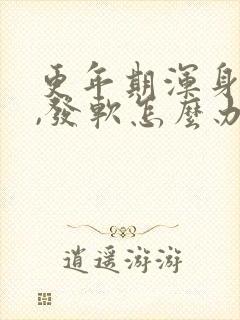 更年期渾身
,發軟怎麼办
逍遥游游